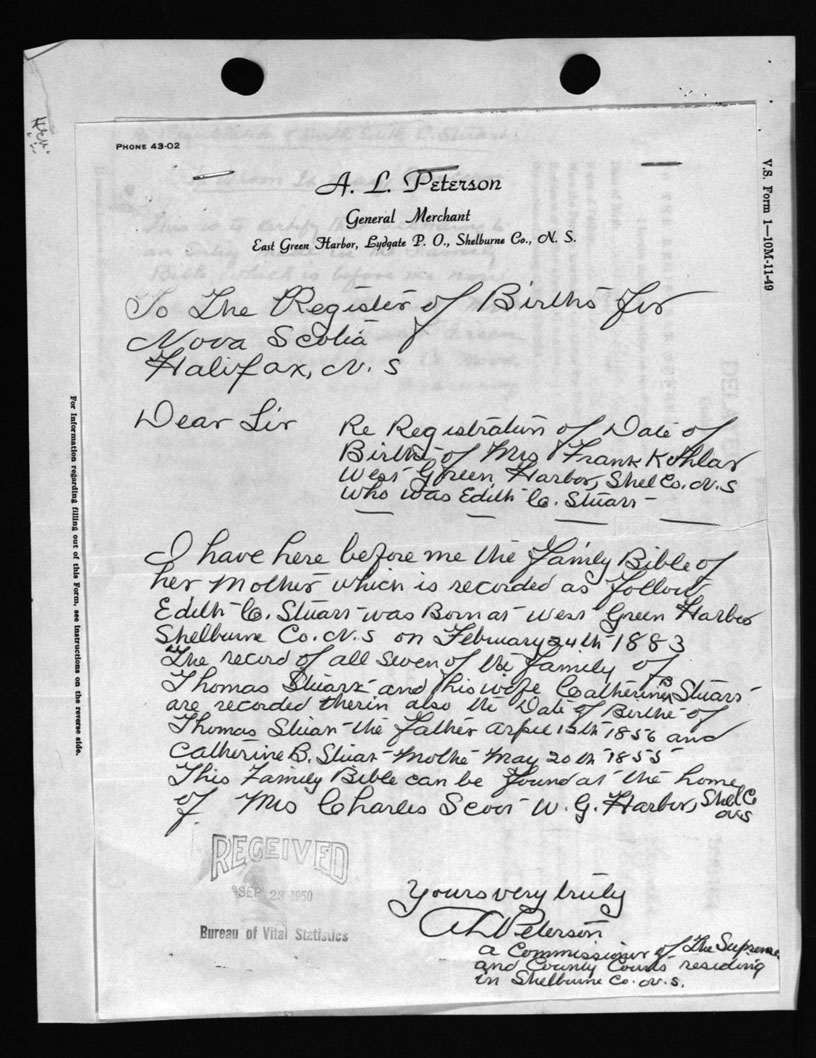 PHONE 43-02
A. L. Peterson
General Merchant
East Green Harbor, Lydgate P. O., Shelburne Co., N. S.
V.S. Form 1—10M-11-49
To The Register of Births for
Nova Scotia
Halifax, N. S
Dear Sir
Re Registration of Date of
Birth of Mrs Frank Kohlar
West Green Harbor, Shel Co. N. S
who was Edith C. Stuart
I have here before me the Family Bible of
her Mother which is recorded as follow
Edith C. Stuart was Born at West Green Harbor
Shelburne Co. N. S on February 24th 1883
The record of all seven of the Family of
Thomas Stuart and his wife Catherine B Stuart
are recorded therin also the Date of Birthe of
Thomas Stuart the father 15th 1856 and
Catherine B. Stuart Mothe May 20th 1855
This Family Bible can be found at the home
of Mrs Charles Scott W. G. Harbor, Shel C
N.S
For Information regarding filling out of this Form, see Instructions on the reverse side.
RECEIVED
SEP 28 1950
Bureau of Vital Statistics
Yours very truly
A L Peterson
a Commissioner of The Supreme
and County Courts residing
in Shelburne Co. N. S.